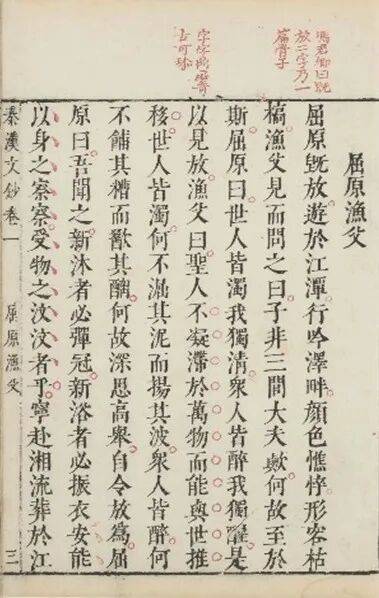 曰既
放二字乃一
篇骨子
字字
古可
屈原漁父
屈原既放遊於江潭行吟澤畔。顏色憔悴形容枯
槁漁父見而問之曰子非三閭大夫歟何故至於
斯屈原曰世人皆濁我獨淸。衆人皆醉我獨醒。是
以見放漁父曰聖人不凝滯於萬物而能與世推
移。世人皆濁。何不淈其泥而揚其波。衆人皆醉。何
不餔其糟而歠其醨。何故深思高舉。自令放為屈
原曰吾聞之新沐者必彈冠。新浴者必振衣。安能
以身之察察受物之汶汶者乎。寧赴湘流葬於江
秦漢文鈔卷一 屈原漁父 三